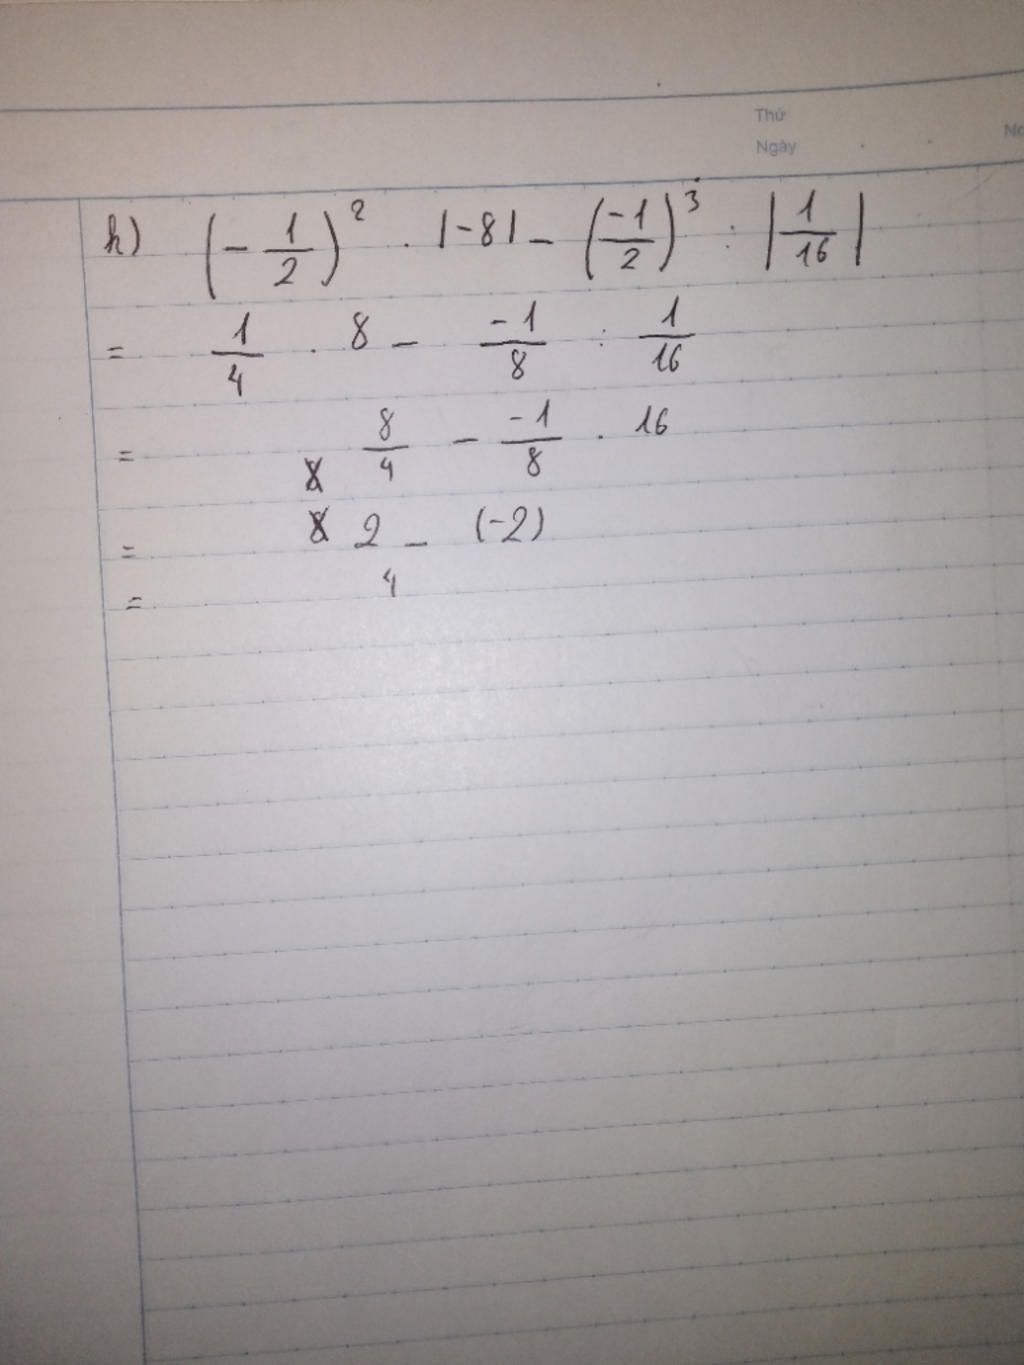 Thứ
Ngày
No
h) (- 1/2)² . |-8| - (-1/2)³ : |1/16|
= 1/4 . 8 - -1/8 : 1/16
= 8/4 - -1/8 . 16
= 2 - (-2)
= 4